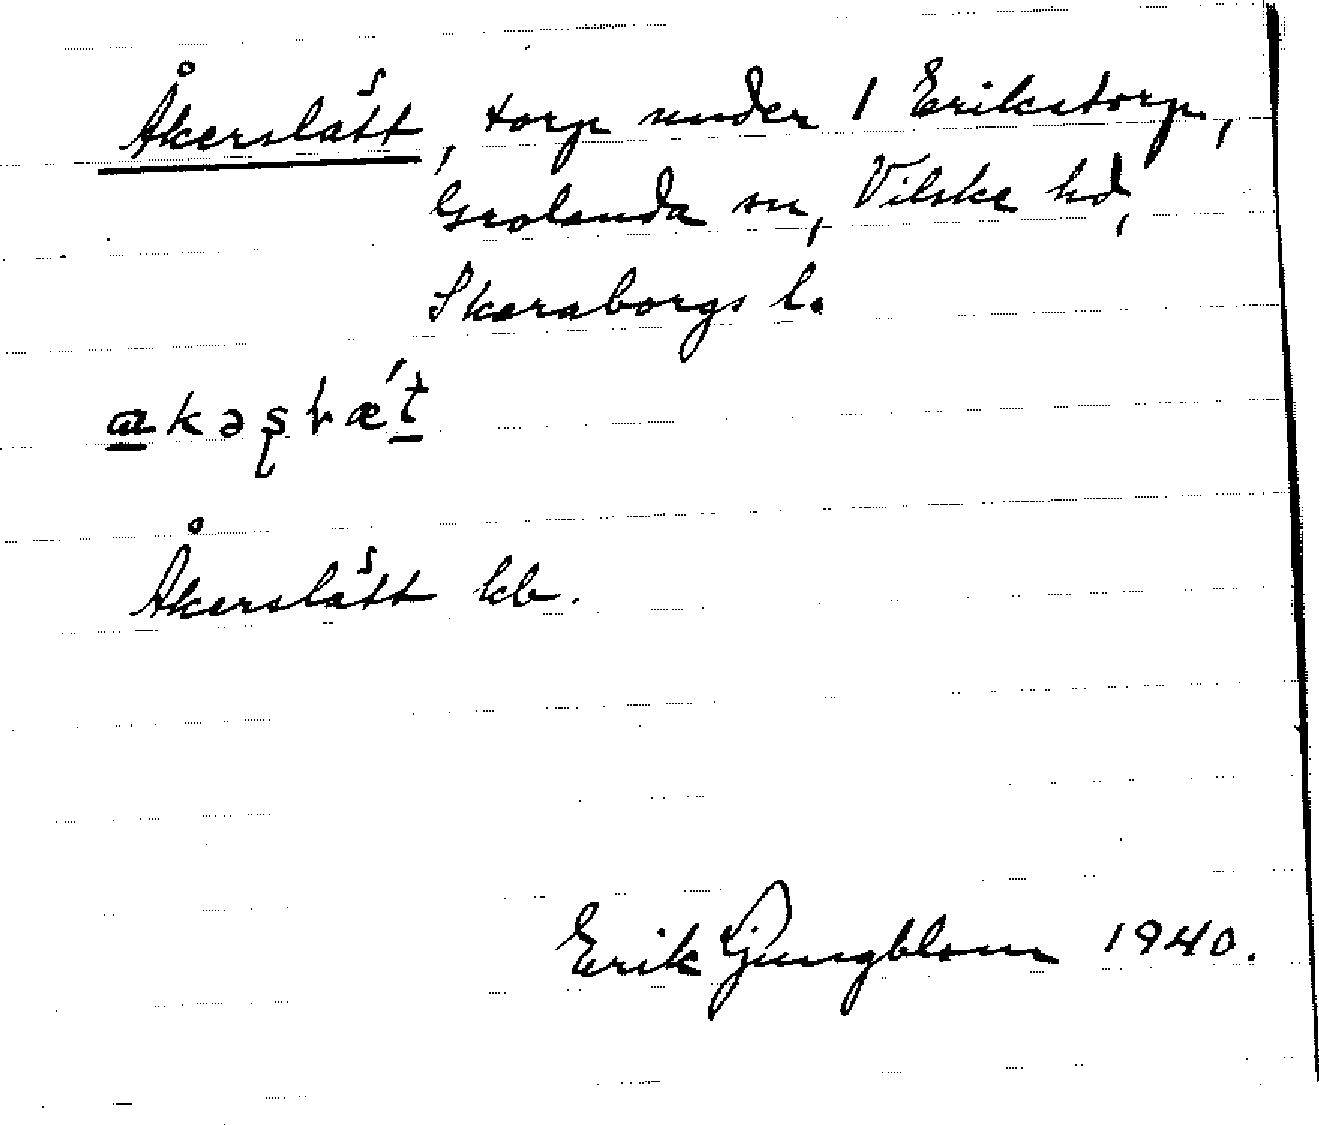 Åkerslätt, torp under 1 Erikstorp,
Grolanda sn, Vilske hd,
Skaraborgs l.
Åkerslätt kb.
Erik Ljungblom 1940.